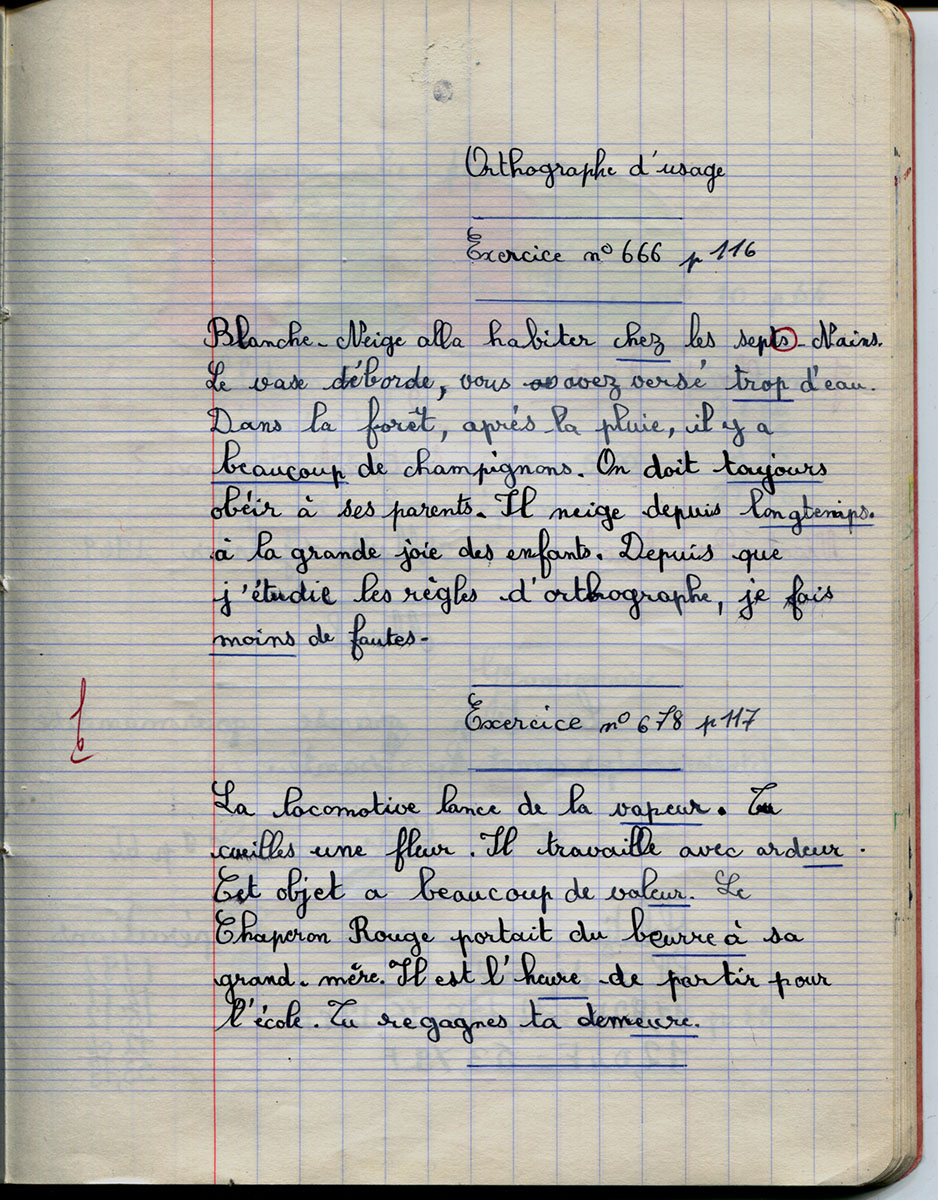 Orthographe d'usage
Exercice n° 666 p 116
Blanche-Neige alla habiter chez les septs-Nains.
Le vase déborde, vous avez versé trop d'eau.
Dans la forêt, après la pluie, il y a
beaucoup de champignons. On doit toujours
obéir à ses parents. Il neige depuis longtemps.
à la grande joie des enfants. Depuis que
j'étudie les règles d'orthographe, je fais
moins de fautes.
Exercice n° 678 p 117
La locomotive lance de la vapeur. Tu
cueilles une fleur. Il travaille avec ardeur.
Cet objet a beaucoup de valeur. Le
Chaperon Rouge portait du beurre à sa
grand-mère. Il est l'heure de partir pour
l'école. Tu regagnes ta demeure.